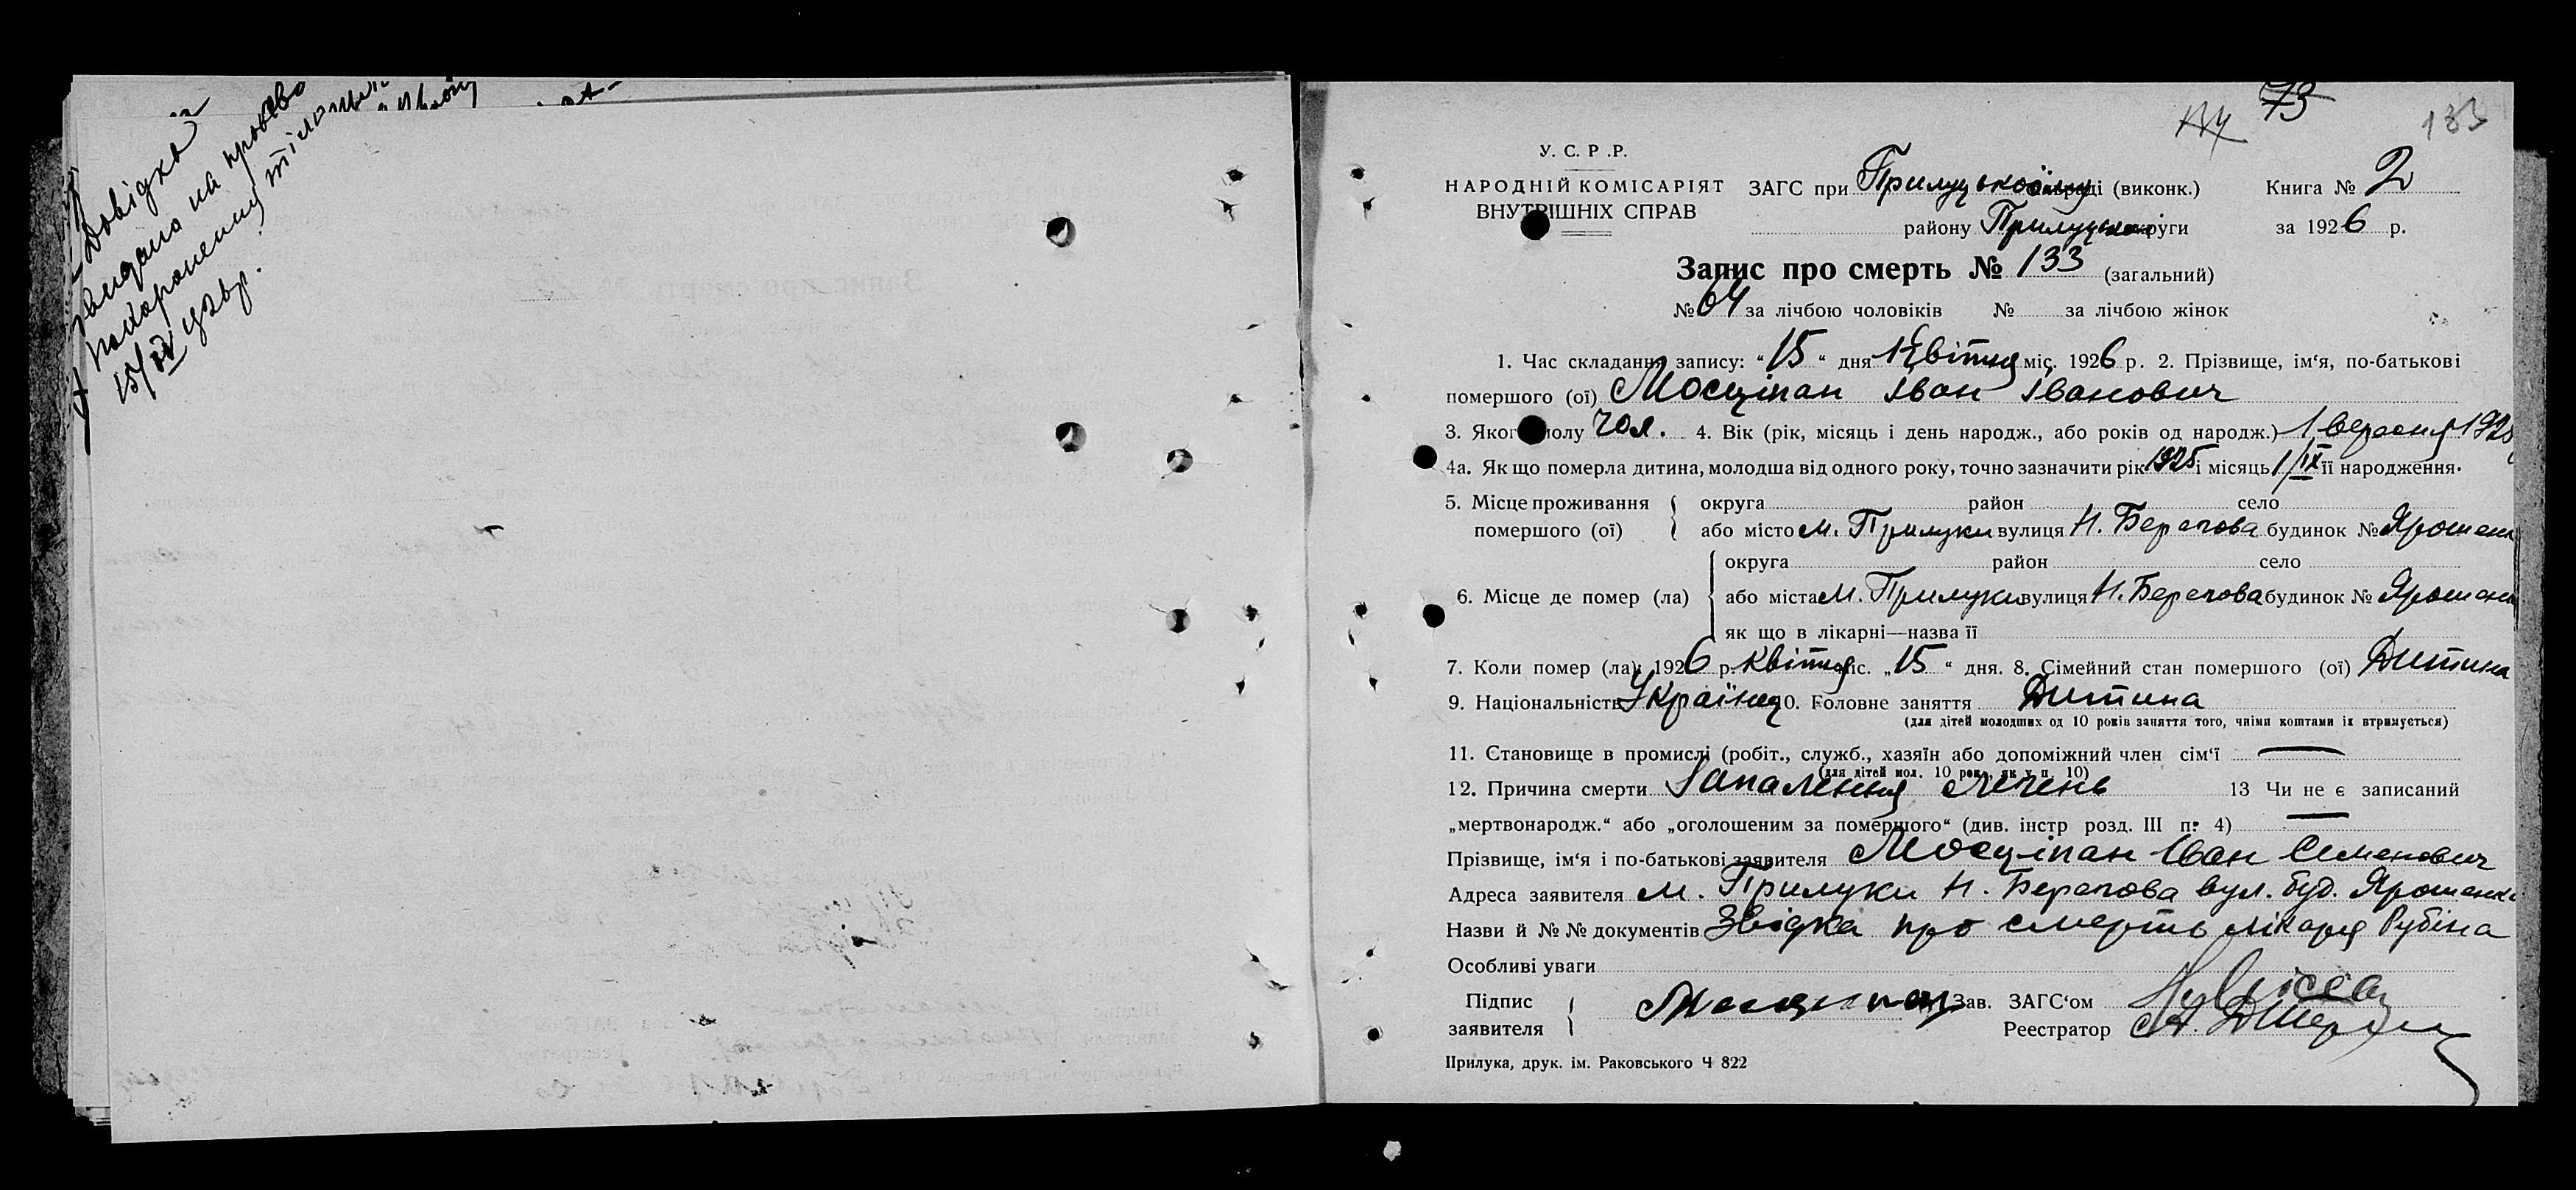 Довідка
видана на право
похоронення тіла
15/IV 1926 р.
73
133
У. С. Р .Р.
НАРОДНІЙ КОМІСАРІЯТ
ВНУТРІШНІХ СПРАВ
ЗАГС при Прилуцькому раді (виконк.)
Книга № 2
району Прилуцької округи
за 1926 р.
Запис про смерть № 133 (загальний)
№ 64 за лічбою чоловіків № за лічбою жінок
1. Час складання запису: “ 15 “ дня Квітня міс. 1926 р. 2. Прізвище, ім‘я, по-батькові
помершого (ої) Мосціпан Іван Іванович
3. Якого полу чол. 4. Вік (рік, місяць і день народж., або років од народж.) 1 вересня 1925
4а. Як що померла дитина, молодша від одного року, точно зазначити рік 1925 і місяць 1/IX її народження.
5. Місце проживання округа район село
помершого (ої) або місто м. Прилуки вулиця Н. Берегова будинок № Ярошенк
округа район село
6. Місце де помер (ла) або міста м. Прилуки вулиця Н. Берегова будинок № Ярошенк
як що в лікарні—назва її
7. Коли помер (ла): 1926 р. Квітня міс. „ 15 “ дня. 8. Сімейний стан помершого (ої) Дитина
9. Національність Українец 10. Головне заняття Дитина
(для дітей молодших од 10 років заняття того, чиїми коштами їх втримується)
11. Становище в промислі (робіт., служб., хазяїн або допоміжний член сім‘ї —
(для дітей мол. 10 рок., як у п. 10)
12. Причина смерти Запалення легень 13 Чи не є записаний
„мертвонародж.“ або „оголошеним за помершого“ (див. інстр розд. III п. 4) —
Прізвище, ім‘я і по-батькові заявителя Мосціпан Іван Семенович
Адреса заявителя м. Прилуки Н. Берегова вул. буд. Ярошенка
Назви й №№ документів Звідка про смерть лікаря Рубіна
Особливі уваги
Підпис
заявителя Мосципан
Зав. ЗАГС‘ом
Реестратор
Прилука, друк. ім. Раковського Ч 822